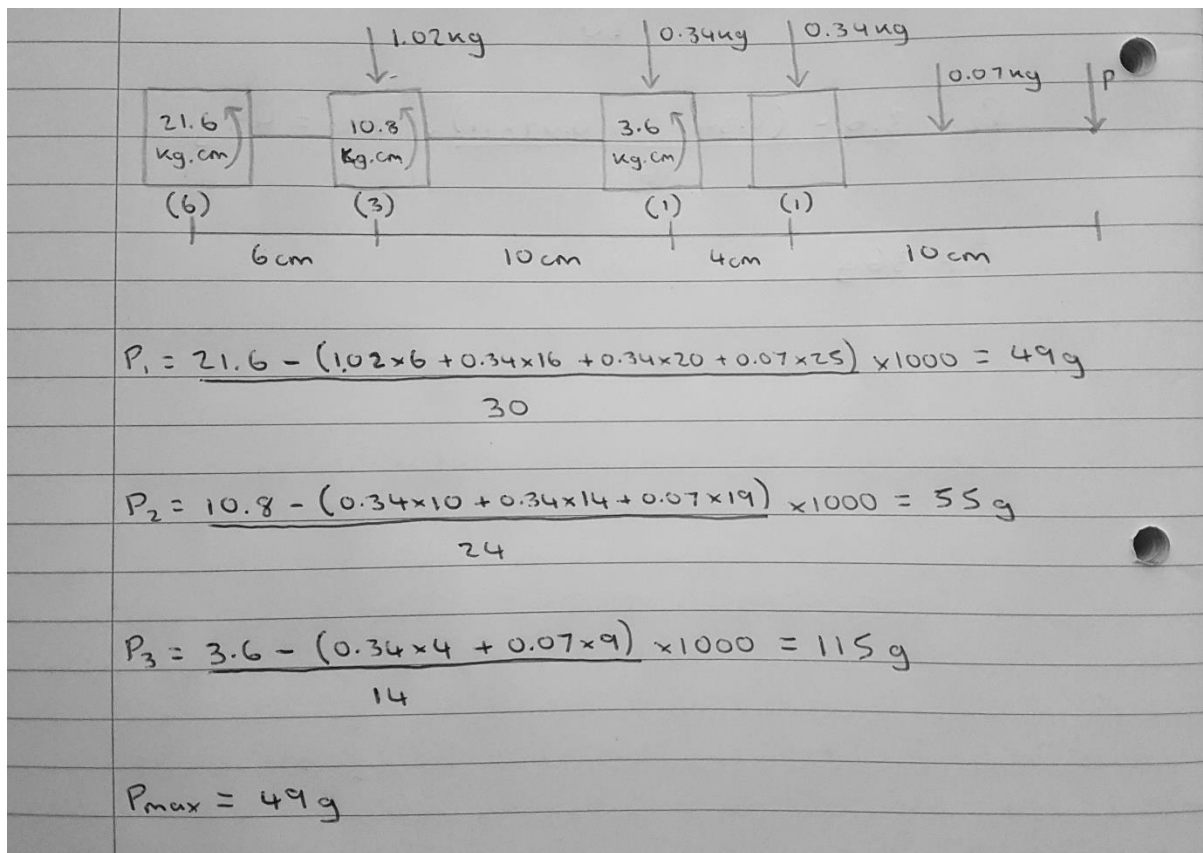 1.02kg 0.34kg 0.34kg
0.07kg P
21.6 10.8 3.6
kg.cm kg.cm kg.cm
(6) (3) (1) (1)
6cm 10cm 4cm 10cm
P₁ = 21.6 - (1.02×6 + 0.34×16 + 0.34×20 + 0.07×25) ×1000 = 49g
30
P₂ = 10.8 - (0.34×10 + 0.34×14 + 0.07×19) ×1000 = 55g
24
P₃ = 3.6 - (0.34×4 + 0.07×9) ×1000 = 115g
14
Pmax = 49g